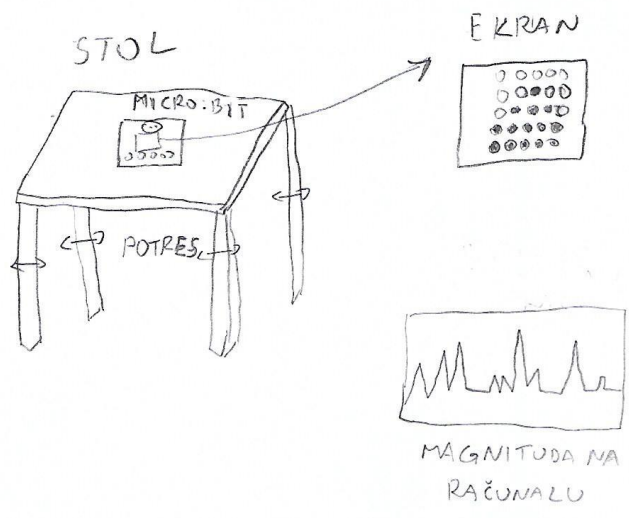 STOL
EKRAN
MICRO:BIT
POTRES
MAGNITUDA NA
RAČUNALU